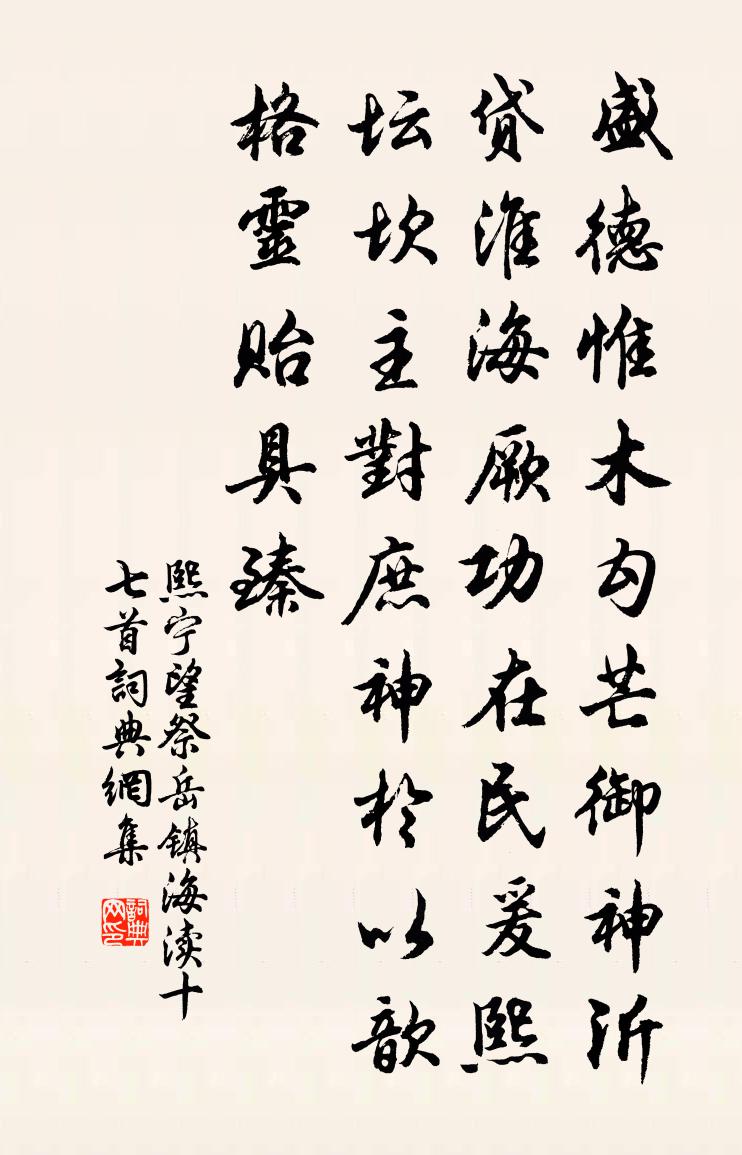 盛德惟木勾芒御神沂
贷淮海厥功在民爰熙
坛坎主對庶神於以歆
格靈貽具臻
熙宁望祭岳鎮海渎十
七首詞典網集
詞典网印